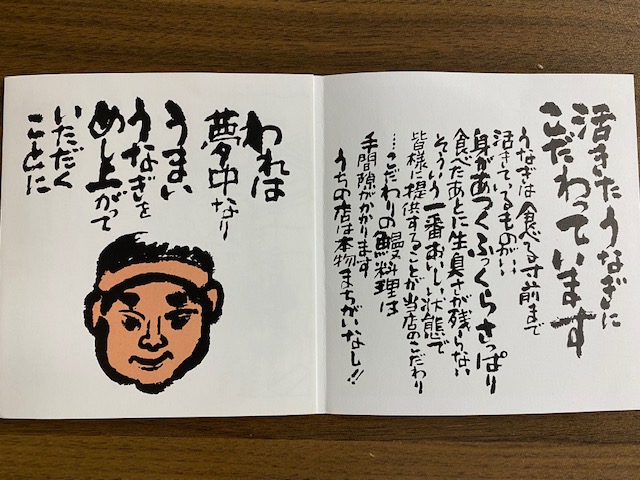 活きたうなぎに
こだわっています
うなぎは食べる寸前まで
活きているものがいい
身があつくふっくらさっぱり
食べたあとに生臭さが残らない
そういう一番おいしい状態で
皆様に提供することが当店のこだわり
…こだわりの鰻料理は
手間隙がかかります
うちの店は本物まちがいなし!!
われは
夢中なり
うまい
うなぎを
めし上がって
いただく
ことに